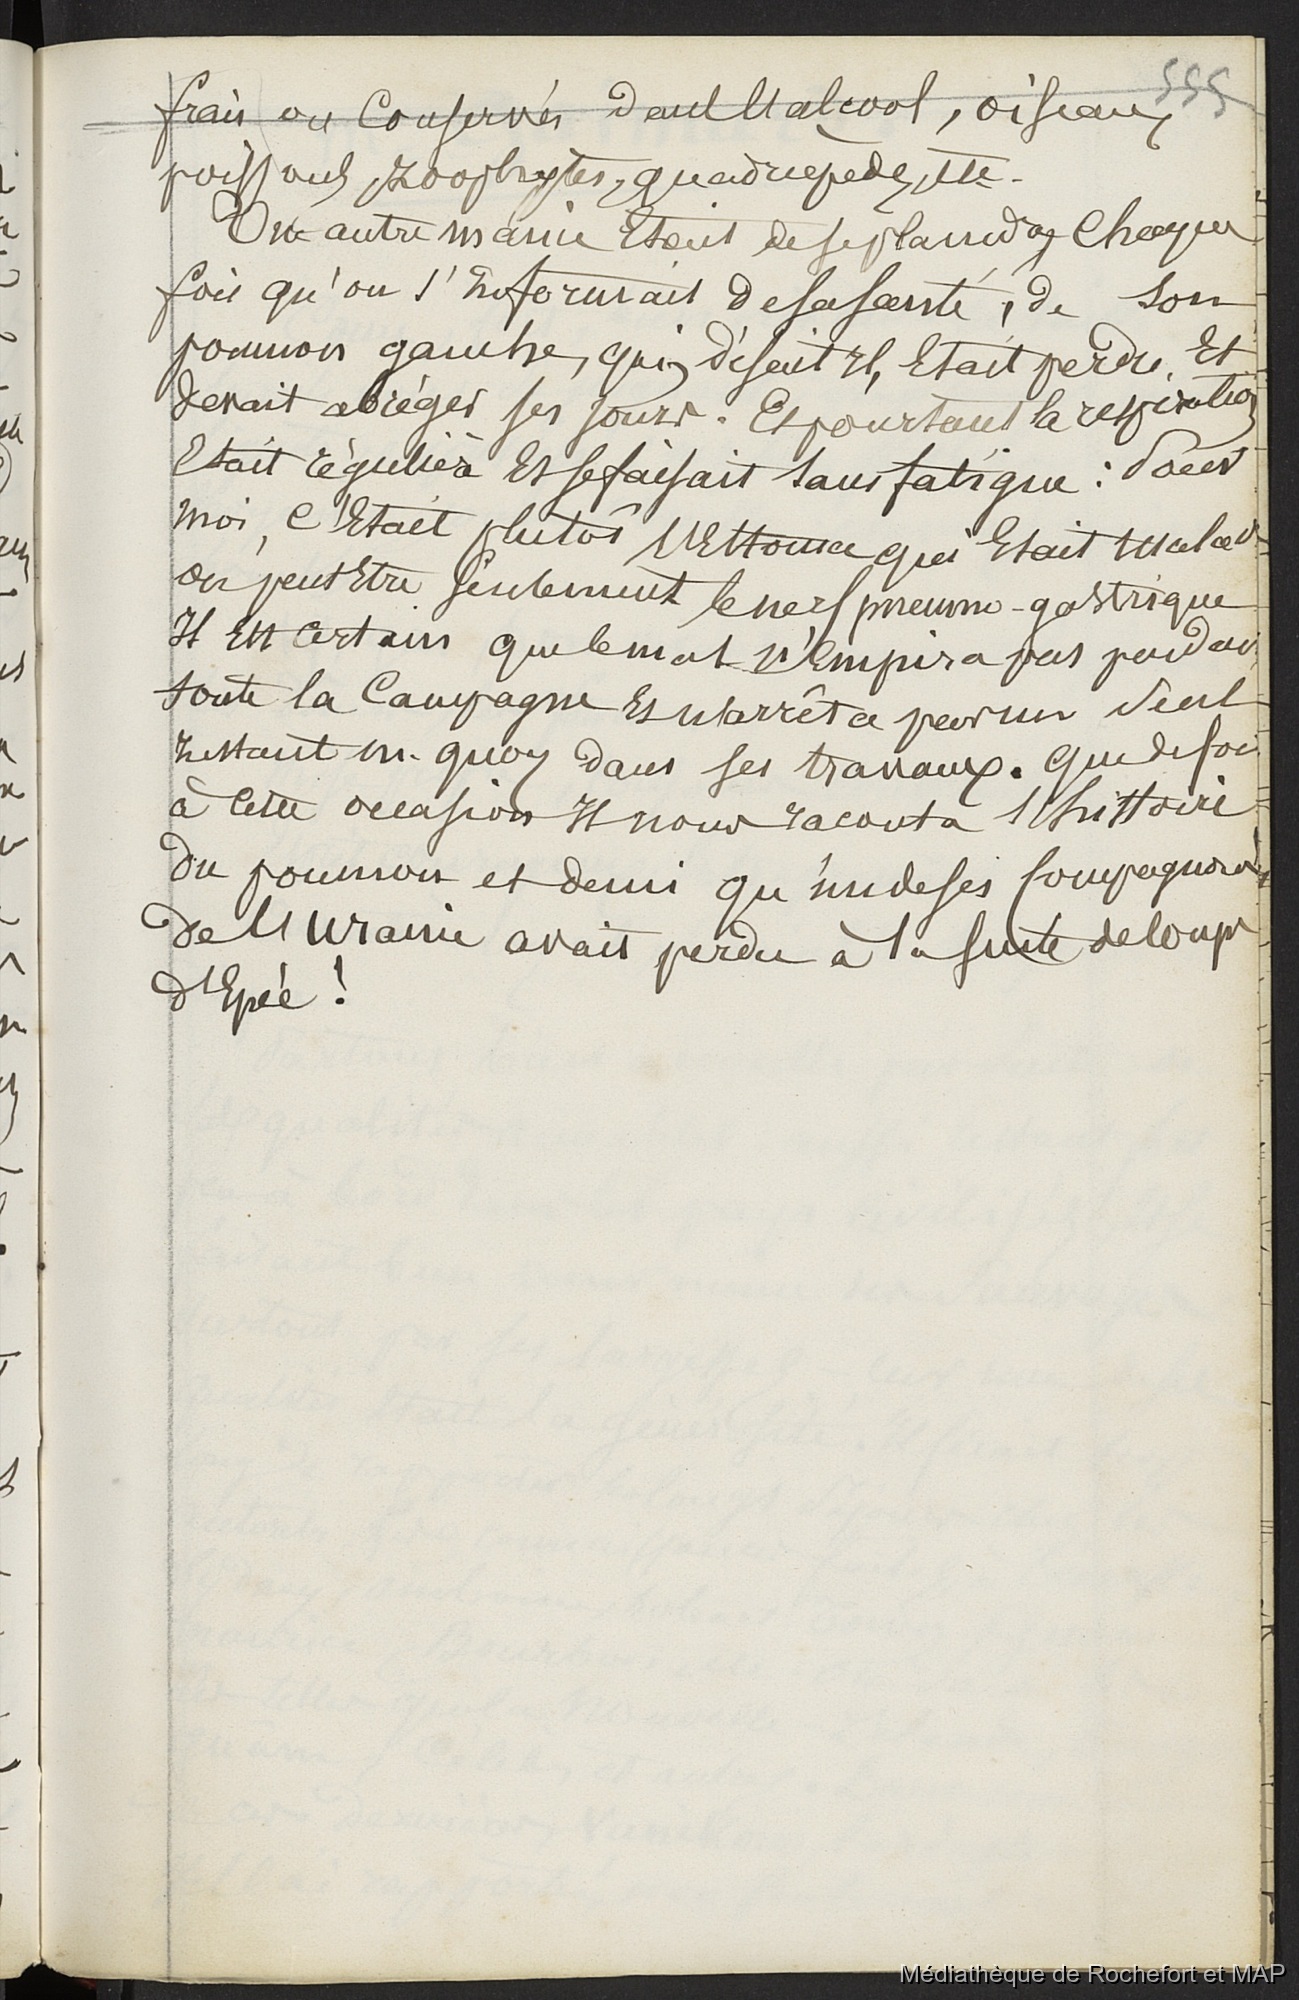 555
frais ou conservés dans l'alcool, oiseaux,
poissons, zoophytes, quadrupèdes, etc.
Une autre manie était de se plaindre, chaque
fois qu'on s'informait de sa santé, de son
poumon gauche, qui, disait il, était perdu, et
devait abréger ses jours. Et pourtant la respiration
était régulière et se faisait sans fatigue : Pour
moi, c'était plutôt l'estomac qui était malade
ou peut être seulement le nerf pneumo-gastrique
Il est certain que le mal n'empira pas pendant
toute la Campagne et n'arrêta pas un seul
instant M. Quoy dans ses travaux. Que de fois
à cette occasion il nous raconta l'histoire
du poumon et demi qu'un de ses compagnons
de l'Uranie avait perdu à la suite de coups
d'épée !
Médiathèque de Rochefort et MAP